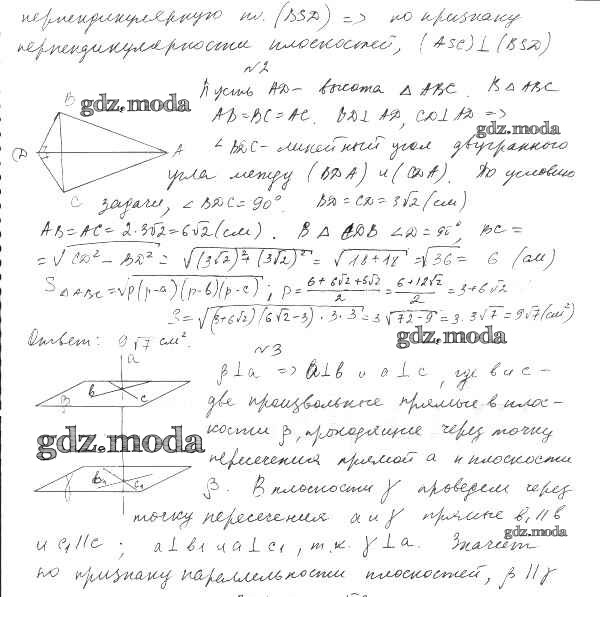 перпендикулярную пл. (BSD) => по признаку
перпендикулярности плоскостей, (ASC)⊥(BSD)
№2
Пусть AD- высота △ABC. В △ABC
gdz.moda
AB=BC=AC. BD⊥AD, CD⊥AD =>
gdz.moda
∠BDC- линейный угол двугранного
угла между (BDA) и (CDA). По условию
B
D
A
C
задачи, ∠BDC=90°. BD=CD=3√2(см)
AB=AC=2·3√2=6√2(см). В △ CDB ∠D=90°, BC=
=√CD²-BD²=√(3√2)²+(3√2)²=√18+18=√36= 6 (см)
S△ABC=√p(p-a)(p-b)(p-c); p=6+6√2+6√2/2=6+12√2/2=3+6√2
S=√(3+6√2)(6√2-3)·3·3=3√72-9=3·3√7=9√7(см²)
gdz.moda
Ответ: 9√7 см².
№3
a
b
c
β
β⊥a => a⊥b и a⊥c, где b и c-
две произвольные прямые в плос-
gdz.moda
кости β, проходящие через точку
пересечения прямой a и плоскости
γ
b₁
c₁
β. В плоскости γ проведем через
точку пересечения a и γ прямые b₁∥b
gdz.moda
и c₁∥c; a⊥b₁ и a⊥c₁, т.к. γ⊥a. Значит
по признаку параллельности плоскостей, β∥γ